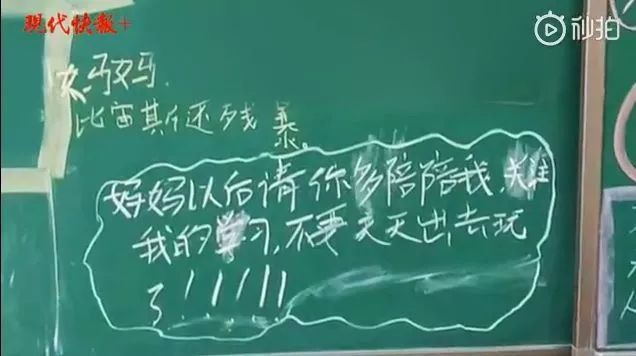 现代快報+
秒拍
妈妈
比宙斯还残暴。
好妈以后请你多陪陪我,关注
我的学习,不要天天出去玩
了!!!!!!